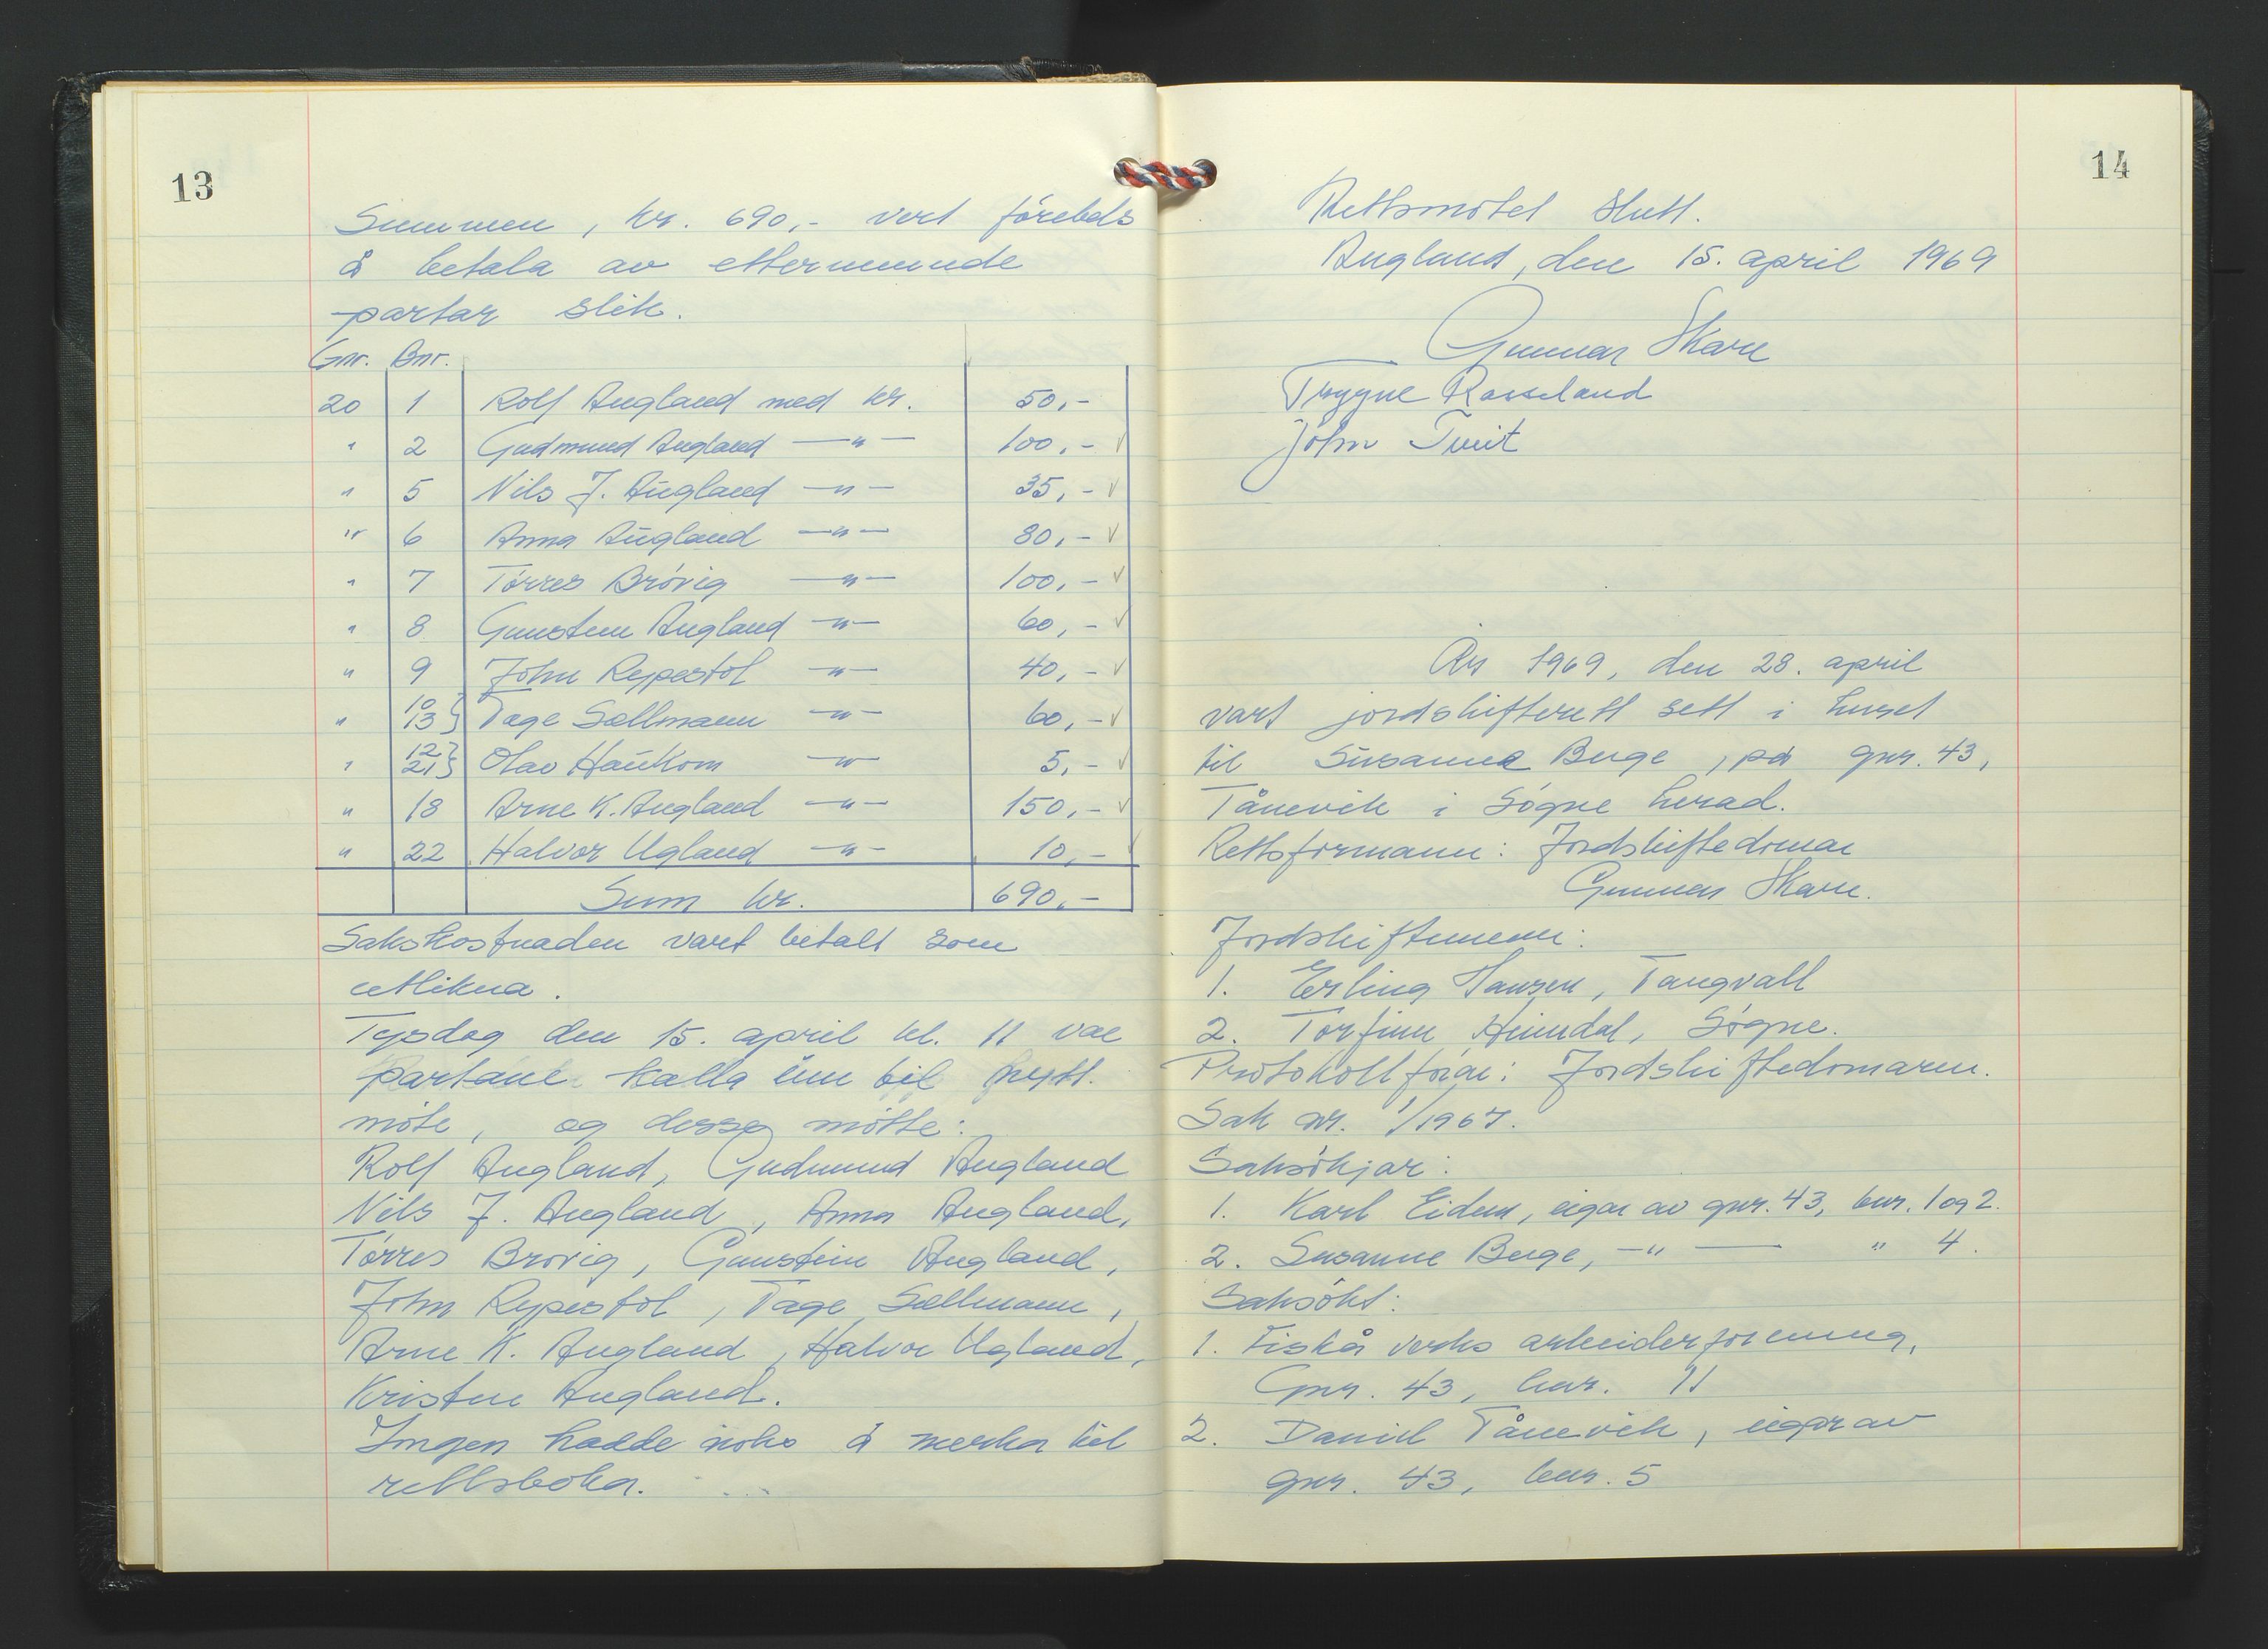 13
Summen, kr. 690,- vert förebels
å betala av etternemnde
partar slik.
Gnr. Bnr.
20 1 Rolf Augland med kr. 50,-
" 2 Gudmund Augland —"— 100,- ✓
" 5 Nils J. Augland —"— 35,- ✓
" 6 Anna Augland —"— 80,- ✓
" 7 Tørres Brøvig —"— 100,- ✓
" 8 Gunstein Augland —"— 60,- ✓
" 9 John Rypestøl —"— 40,- ✓
" 10 13} Tage Sællmann —"— 60,- ✓
" 12 21} Olav Haukom —"— 5,- ✓
" 18 Arne K. Augland —"— 150,- ✓
" 22 Halvor Ugland —"— 10,- ✓
Sum kr. 690,-
Sakskostnaden vart betalt som
utlikna.
Tysdag den 15. april kl. 11 var
partane kalla inn til nytt
møte, og desse møtte:
Rolf Augland, Gudmund Augland
Nils J. Augland, Anna Augland,
Tørres Brøvig, Gunstein Augland,
John Rypestøl, Tage Sællmann,
Arne K. Augland, Halvor Ugland,
Kristen Augland.
Ingen hadde noko å merka til
rettsboka.
14
Rettsmøtet slutt.
Augland, den 15. april 1969
Gunnar Skare
Trygve Rosseland
John Tveit
År 1969, den 28. april
vart jordskifterett sett i huset
til Susanne Berge, på gnr. 43,
Tånevik i Søgne herad.
Rettsformann: Jordskiftedomar
Gunnar Skare.
Jordskiftemenn:
1. Erling Hansen, Tangvall
2. Torfinn Heimdal, Søgne.
Protokollførar: Jordskiftedomaren.
Sak nr. 1/1967.
Saksøkjar:
1. Karl Eidem, eigar av gnr. 43, bnr. 1 og 2.
2. Susanne Berge, —"— " 4.
Saksøkt:
1. Fiskå verks arbeiderforening,
Gnr. 43, bnr. 11
2. Daniel Tånevik, eigar av
gnr. 43, bnr. 5